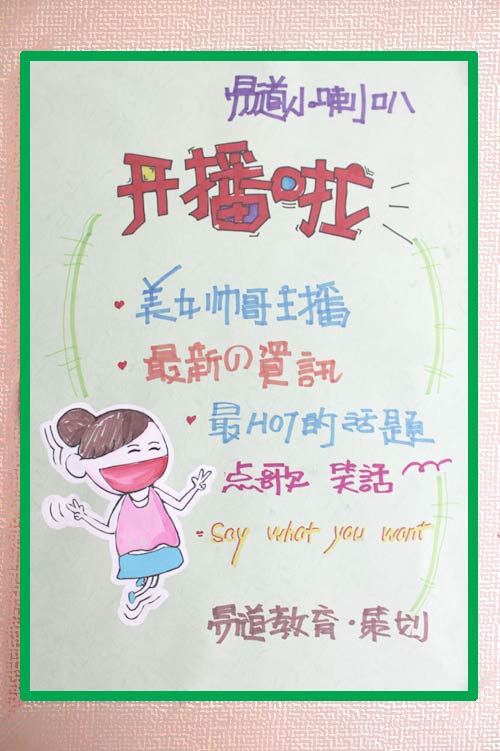 易道小喇叭
开播啦
美女帅哥主播
最新の資訊
最HOT的話題
点歌 笑話
Say what you want
易道教育·策划